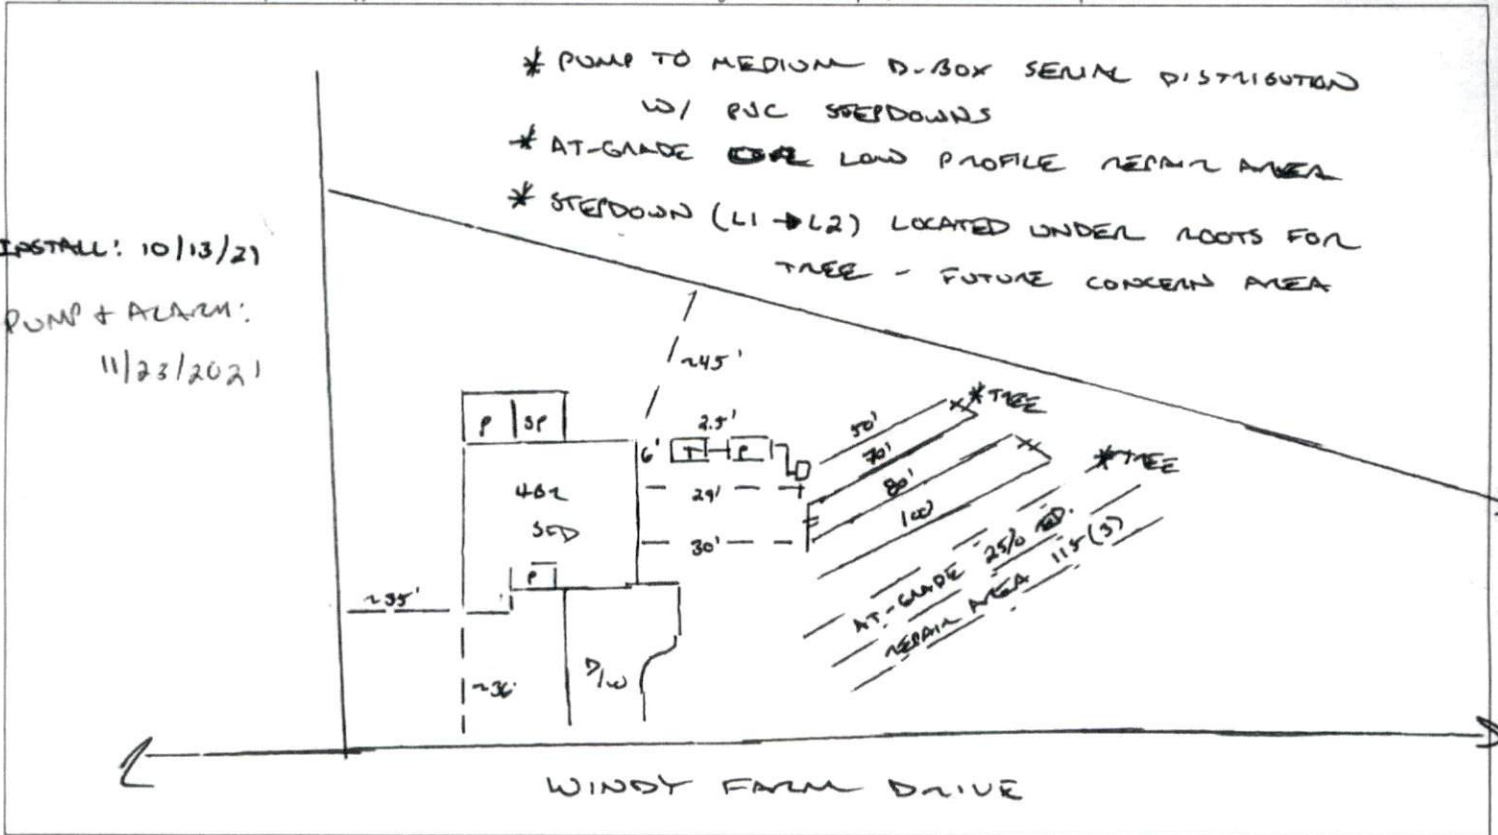 * PUMP TO MEDIUM D-BOX SERIAL DISTRIBUTION
W/ PVC STEPDOWNS
* AT-GRADE LOW PROFILE REPAIR AREA
* STEPDOWN (L1 → L2) LOCATED UNDER ROOTS FOR
TREE - FUTURE CONCERN AREA
INSTALL: 10/13/21
PUMP + ALARM:
11/23/2021
~45'
P SP
2.5'
6' T P
50'
70'
80'
100
* TREE
* TREE
4BR
SFD
29'
30'
P
~35'
~36'
D/W
AT-GRADE 25% RED.
REPAIR AREA 115 (3)
WINDY FARM DRIVE